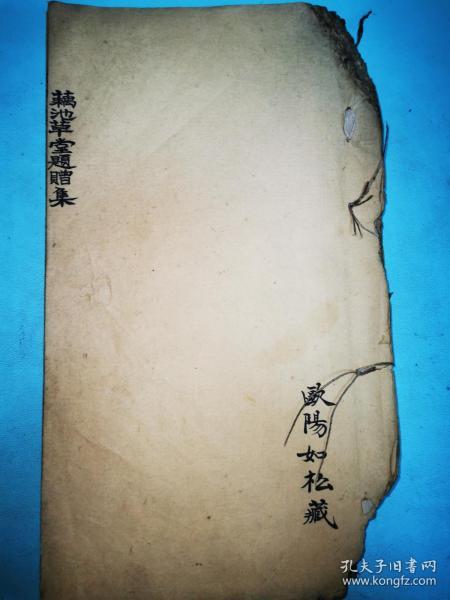 藕池草堂題贈集
歐陽如松藏
孔夫子旧书网
www.kongfz.com